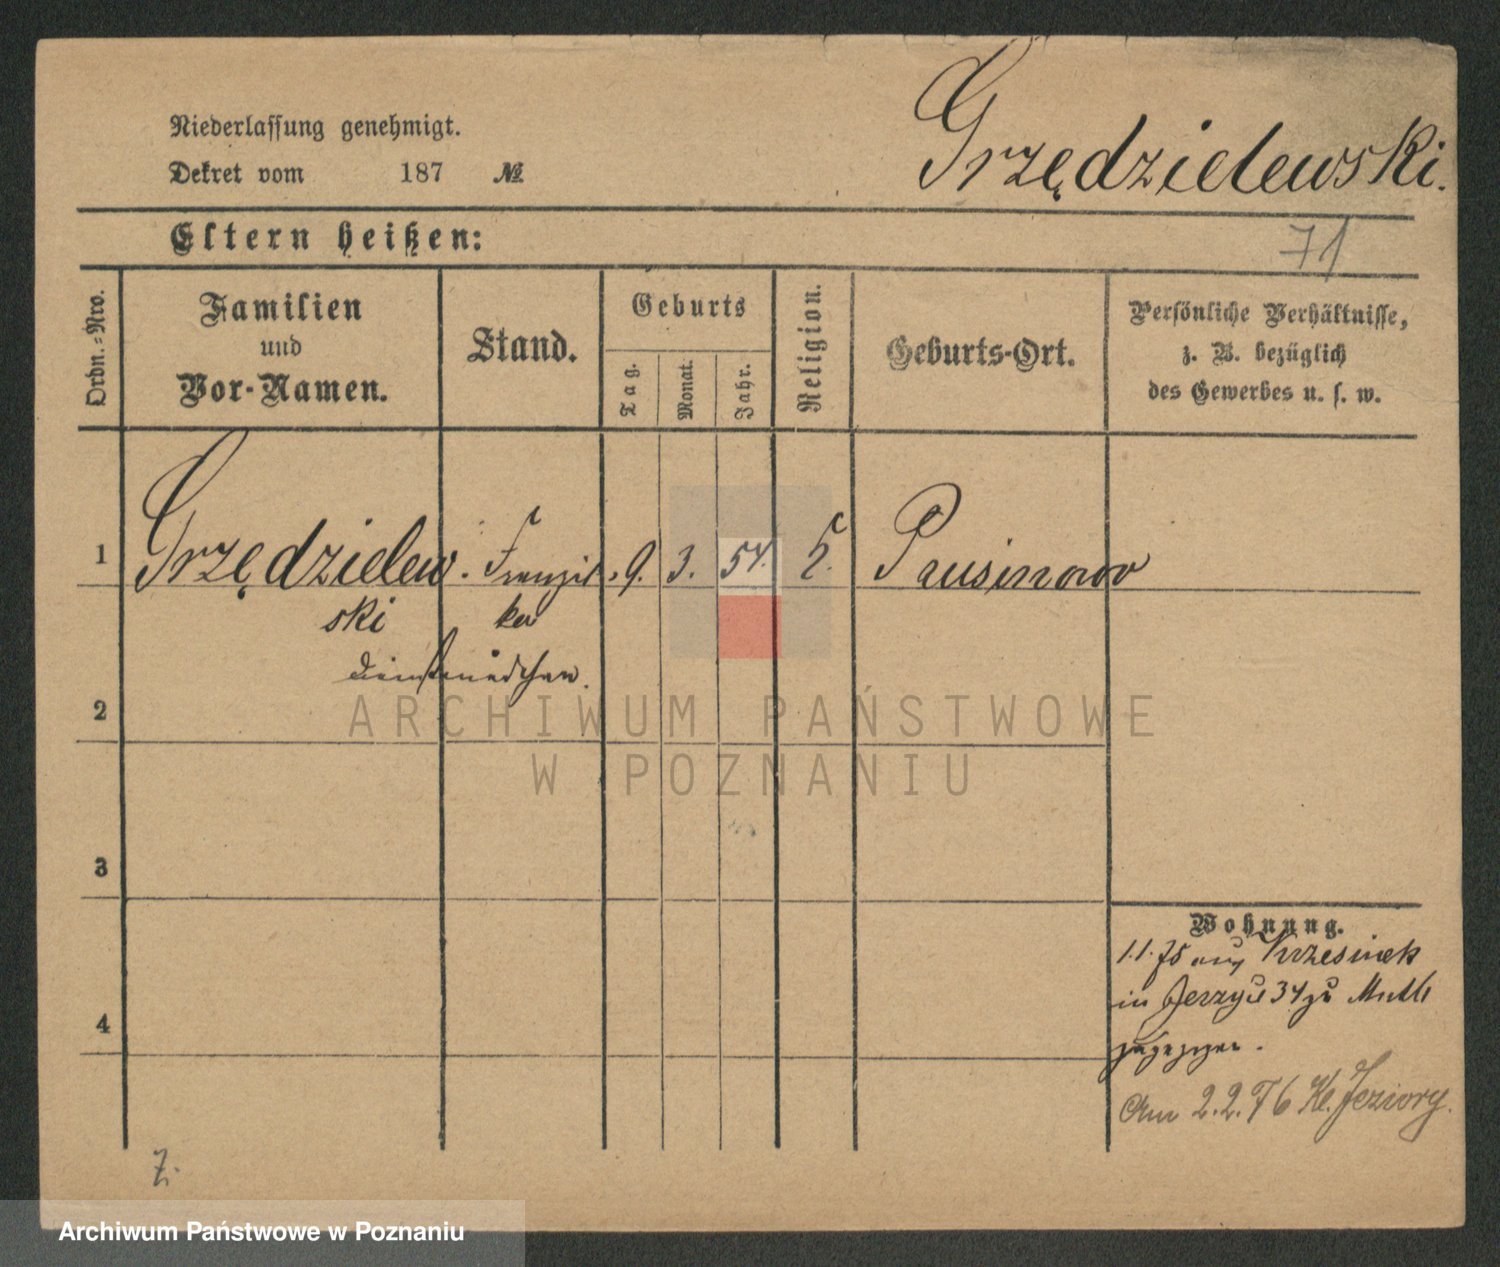 Grzędzielewski.
Niederlassung genehmigt.
Dekret vom 187 №
71
Eltern heißen:
Ordn.=Nro.
Familien
und
Vor-Namen.
Stand.
Geburts
Tag.
Monat.
Jahr.
Religion.
Geburts-Ort.
Persönliche Verhältnisse,
z. B. bezüglich
des Gewerbes u. s. w.
1 Grzędzielew- Franzis- 9. 3. 54. Prusinowo
ski ka
Dienstmädchen.
2
ARCHIWUM PAŃSTWOWE
W POZNANIU
3
Wohnung.
1.1.75 aus Krzesinek
in Jerzyce 34 zu
zugezogen.
4
Am 2.2.76 Kl. Jeziory.
Z.
Archiwum Państwowe w Poznaniu